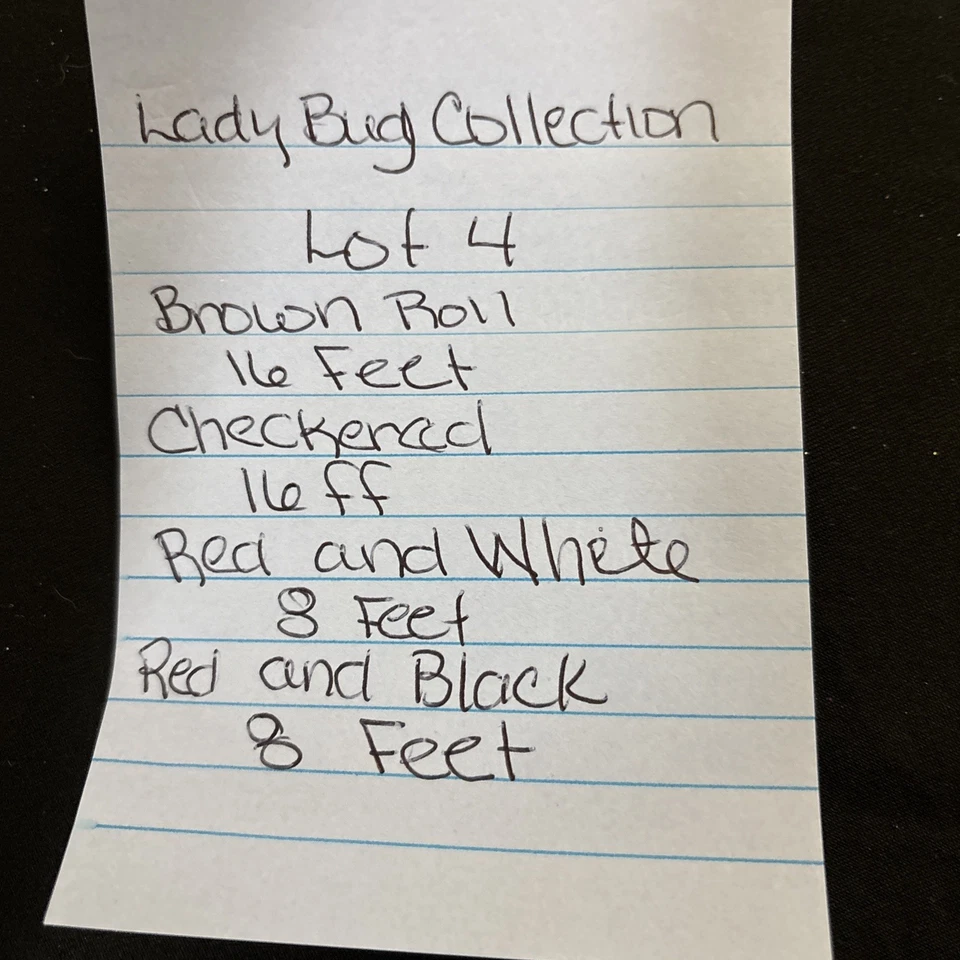 Lady Bug Collection
Lot 4
Brown Roll
16 Feet
Checkered
16 ff
Red and White
8 Feet
Red and Black
8 Feet